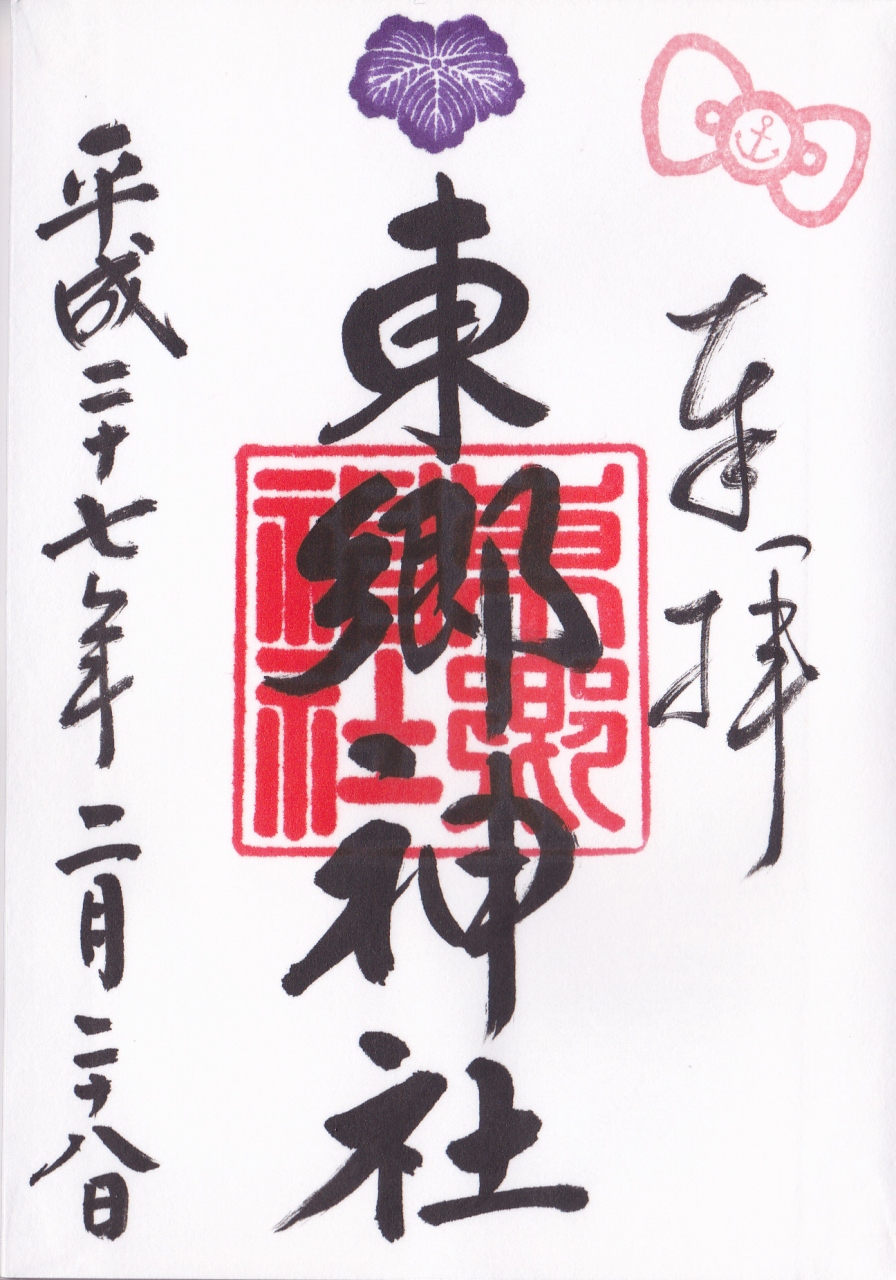 奉拝
東郷神社
東郷神社
平成二十七年二月二十八日